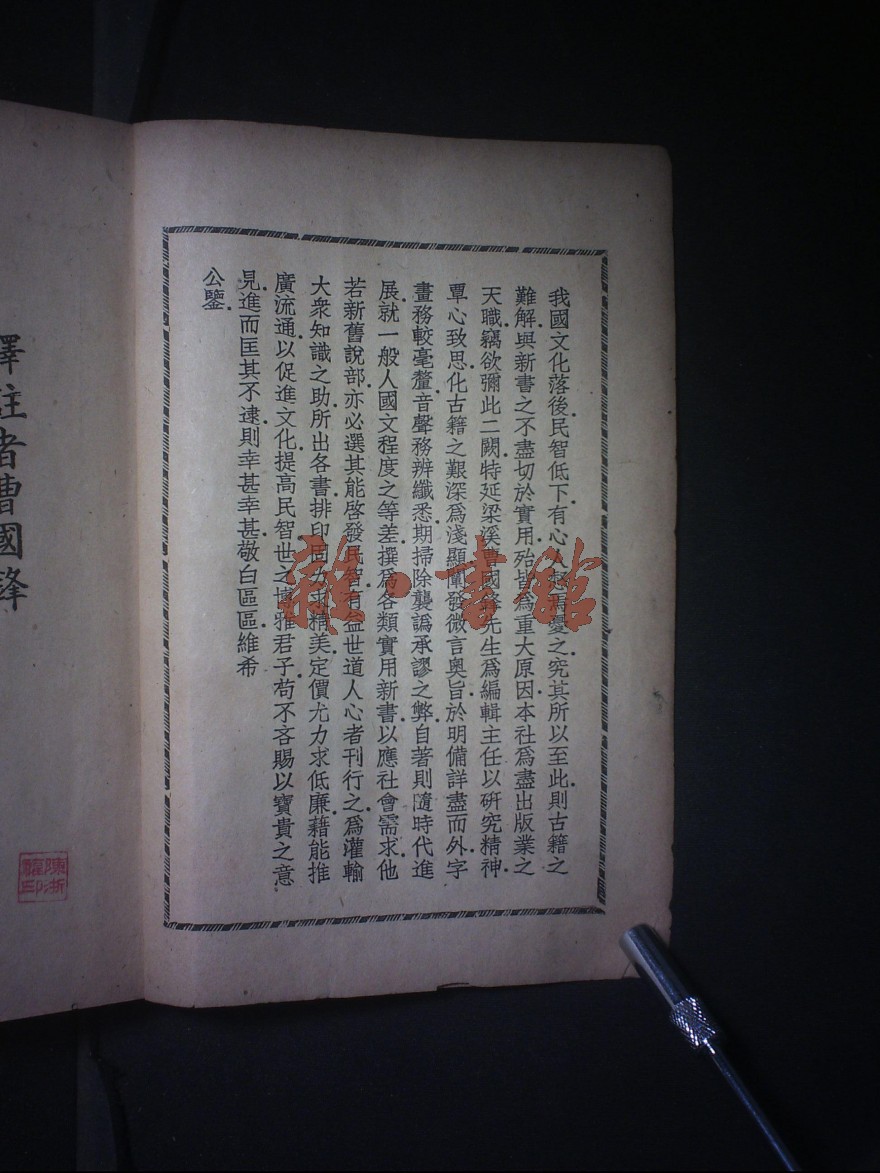 我國文化落後民智低下有心人憂之究其所以至此則古籍之
難解與新書之不盡切於實用殆皆爲重大原因本社爲盡出版業之
天職竊欲彌此二闕特延梁溪曹國鋒先生爲編輯主任以研究精神
覃心致思化古籍之艱深爲淺顯闡發微言奧旨於明備詳盡而外字
畫務較毫釐音聲務辨纖悉期掃除襲譌承謬之弊自著則隨時代進
展就一般人國文程度之等差撰爲各類實用新書以應社會需求他
若新舊說部亦必選其能啓發民智有益世道人心者刊行之爲灌輸
大衆知識之助所出各書排印固力求精美定價尤力求低廉藉能推
廣流通以促進文化提高民智世之博雅君子苟不吝賜以寶貴之意
見進而匡其不逮則幸甚幸甚敬白區區維希
公鑒
譯註者曹國鋒
雜·書館